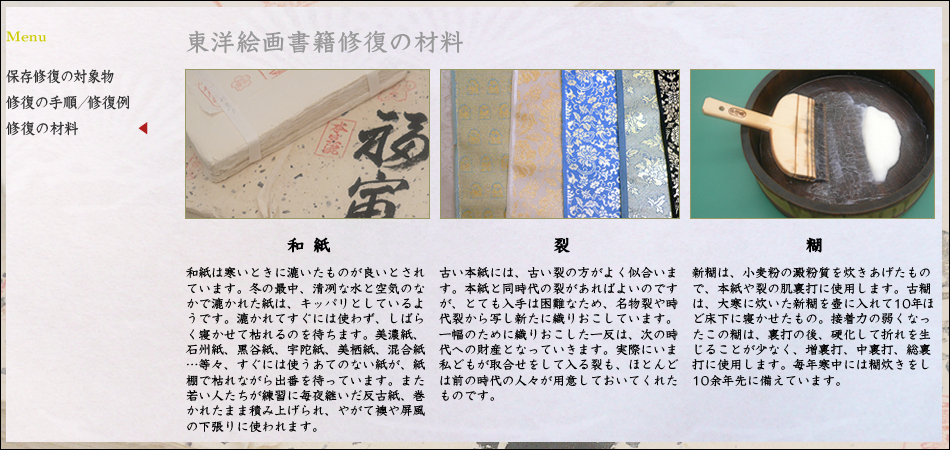 Menu
保存修復の対象物
修復の手順/修復例
修復の材料
東洋絵画書籍修復の材料
福
寅
和 紙
和紙は寒いときに漉いたものが良いとされ
ています。冬の最中、清冽な水と空気のな
かで漉かれた紙は、キッパリとしているよ
うです。漉かれてすぐには使わず、しばら
く寝かせて枯れるのを待ちます。美濃紙、
石州紙、黒谷紙、宇陀紙、美栖紙、混合紙
…等々、すぐには使うあてのない紙が、紙
棚で枯れながら出番を待っています。また
若い人たちが練習に毎夜継いだ反古紙、巻
かれたまま積み上げられ、やがて襖や屏風
の下張りに使われます。
裂
古い本紙には、古い裂の方がよく似合いま
す。本紙と同時代の裂があればよいのです
が、とても入手は困難なため、名物裂や時
代裂から写し新たに織りおこしています。
一幅のために織りおこした一反は、次の時
代への財産となっていきます。実際にいま
私どもが取合せをして入る裂も、ほとんど
は前の時代の人々が用意しておいてくれた
ものです。
糊
新糊は、小麦粉の澱粉質を炊きあげたもの
で、本紙や裂の肌裏打に使用します。古糊
は、大寒に炊いた新糊を壺に入れて10年ほ
ど床下に寝かせたもの。接着力の弱くなっ
たこの糊は、裏打の後、硬化して折れを生
じることが少なく、増裏打、中裏打、総裏
打に使用します。毎年寒中には糊炊きをし
10余年先に備えています。